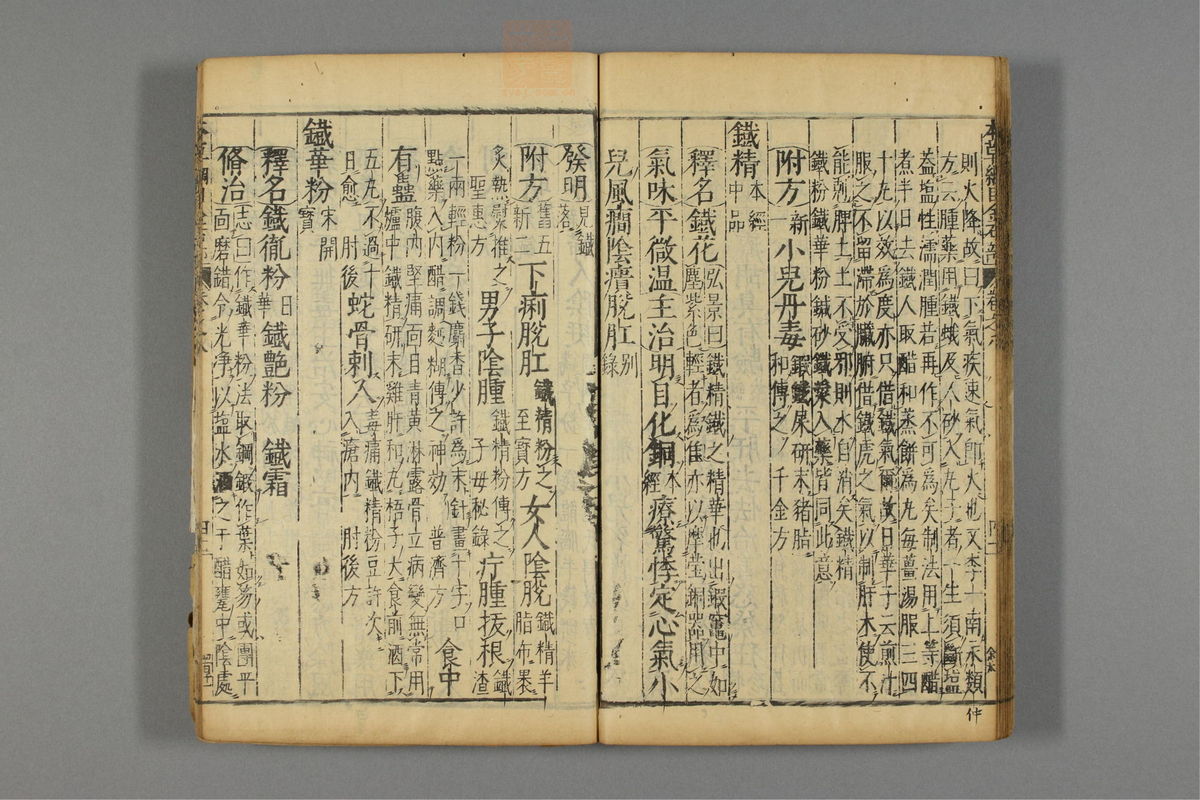 則火降故曰下氣疾速氣即火也又李一南永類
方云腫藥用鐵蛾及人砂入丸子者一生須斷鹽
蓋鹽性濡潤腫若再作不可爲矣制法用上等醋
煮半日去鐵人取醋和蒸餅爲丸每薑湯服三四
十丸以效爲度亦只借鐵氣爾故日華子云煎汁
服之不留滯於臟腑借鐵虎之氣以制肝木使不
能剋脾土土不受邪則水自消矣鐵精
鐵粉鐵華粉鍼砂鐵漿入藥皆同此意
附方新一小兒丹毒鍛鐵屎研末豬脂和傅之千金方
鐵精本經中品
釋名鐵花弘景曰鐵精鐵之精華也出鍛竈中如塵紫色輕者爲佳亦以摩瑩銅器用之
氣味平微温主治明目化銅本經療驚悸定心氣小
兒風癎陰㿉脫肛别錄
發明見鐵落
附方舊五新二下痢脫肛鐵精粉之至寶方女人陰脫鐵精羊脂布裹
炙熱熨推之聖惠方男子陰腫鐵精粉傅之子母秘錄疔腫拔根鐵渣
一兩輕粉一錢麝香少許爲末針畫十字口點藥入內醋調麪糊傅之神効普濟方食中
有蠱腹內堅痛面目青黃淋露骨立病變無常用爐中鐵精研末雞肝和丸梧子大食前酒下
五丸不過十日愈肘後蛇骨刺入毒痛鐵精粉豆許入瘡內肘後方
鐵華粉宋開寶
釋名鐵胤粉日華鐵艶粉 鐵霜
脩治志曰作鐵華粉法取鋼鍛作葉如笏或團平面磨錯令光淨以鹽水洒之于醋甕中陰處
仲